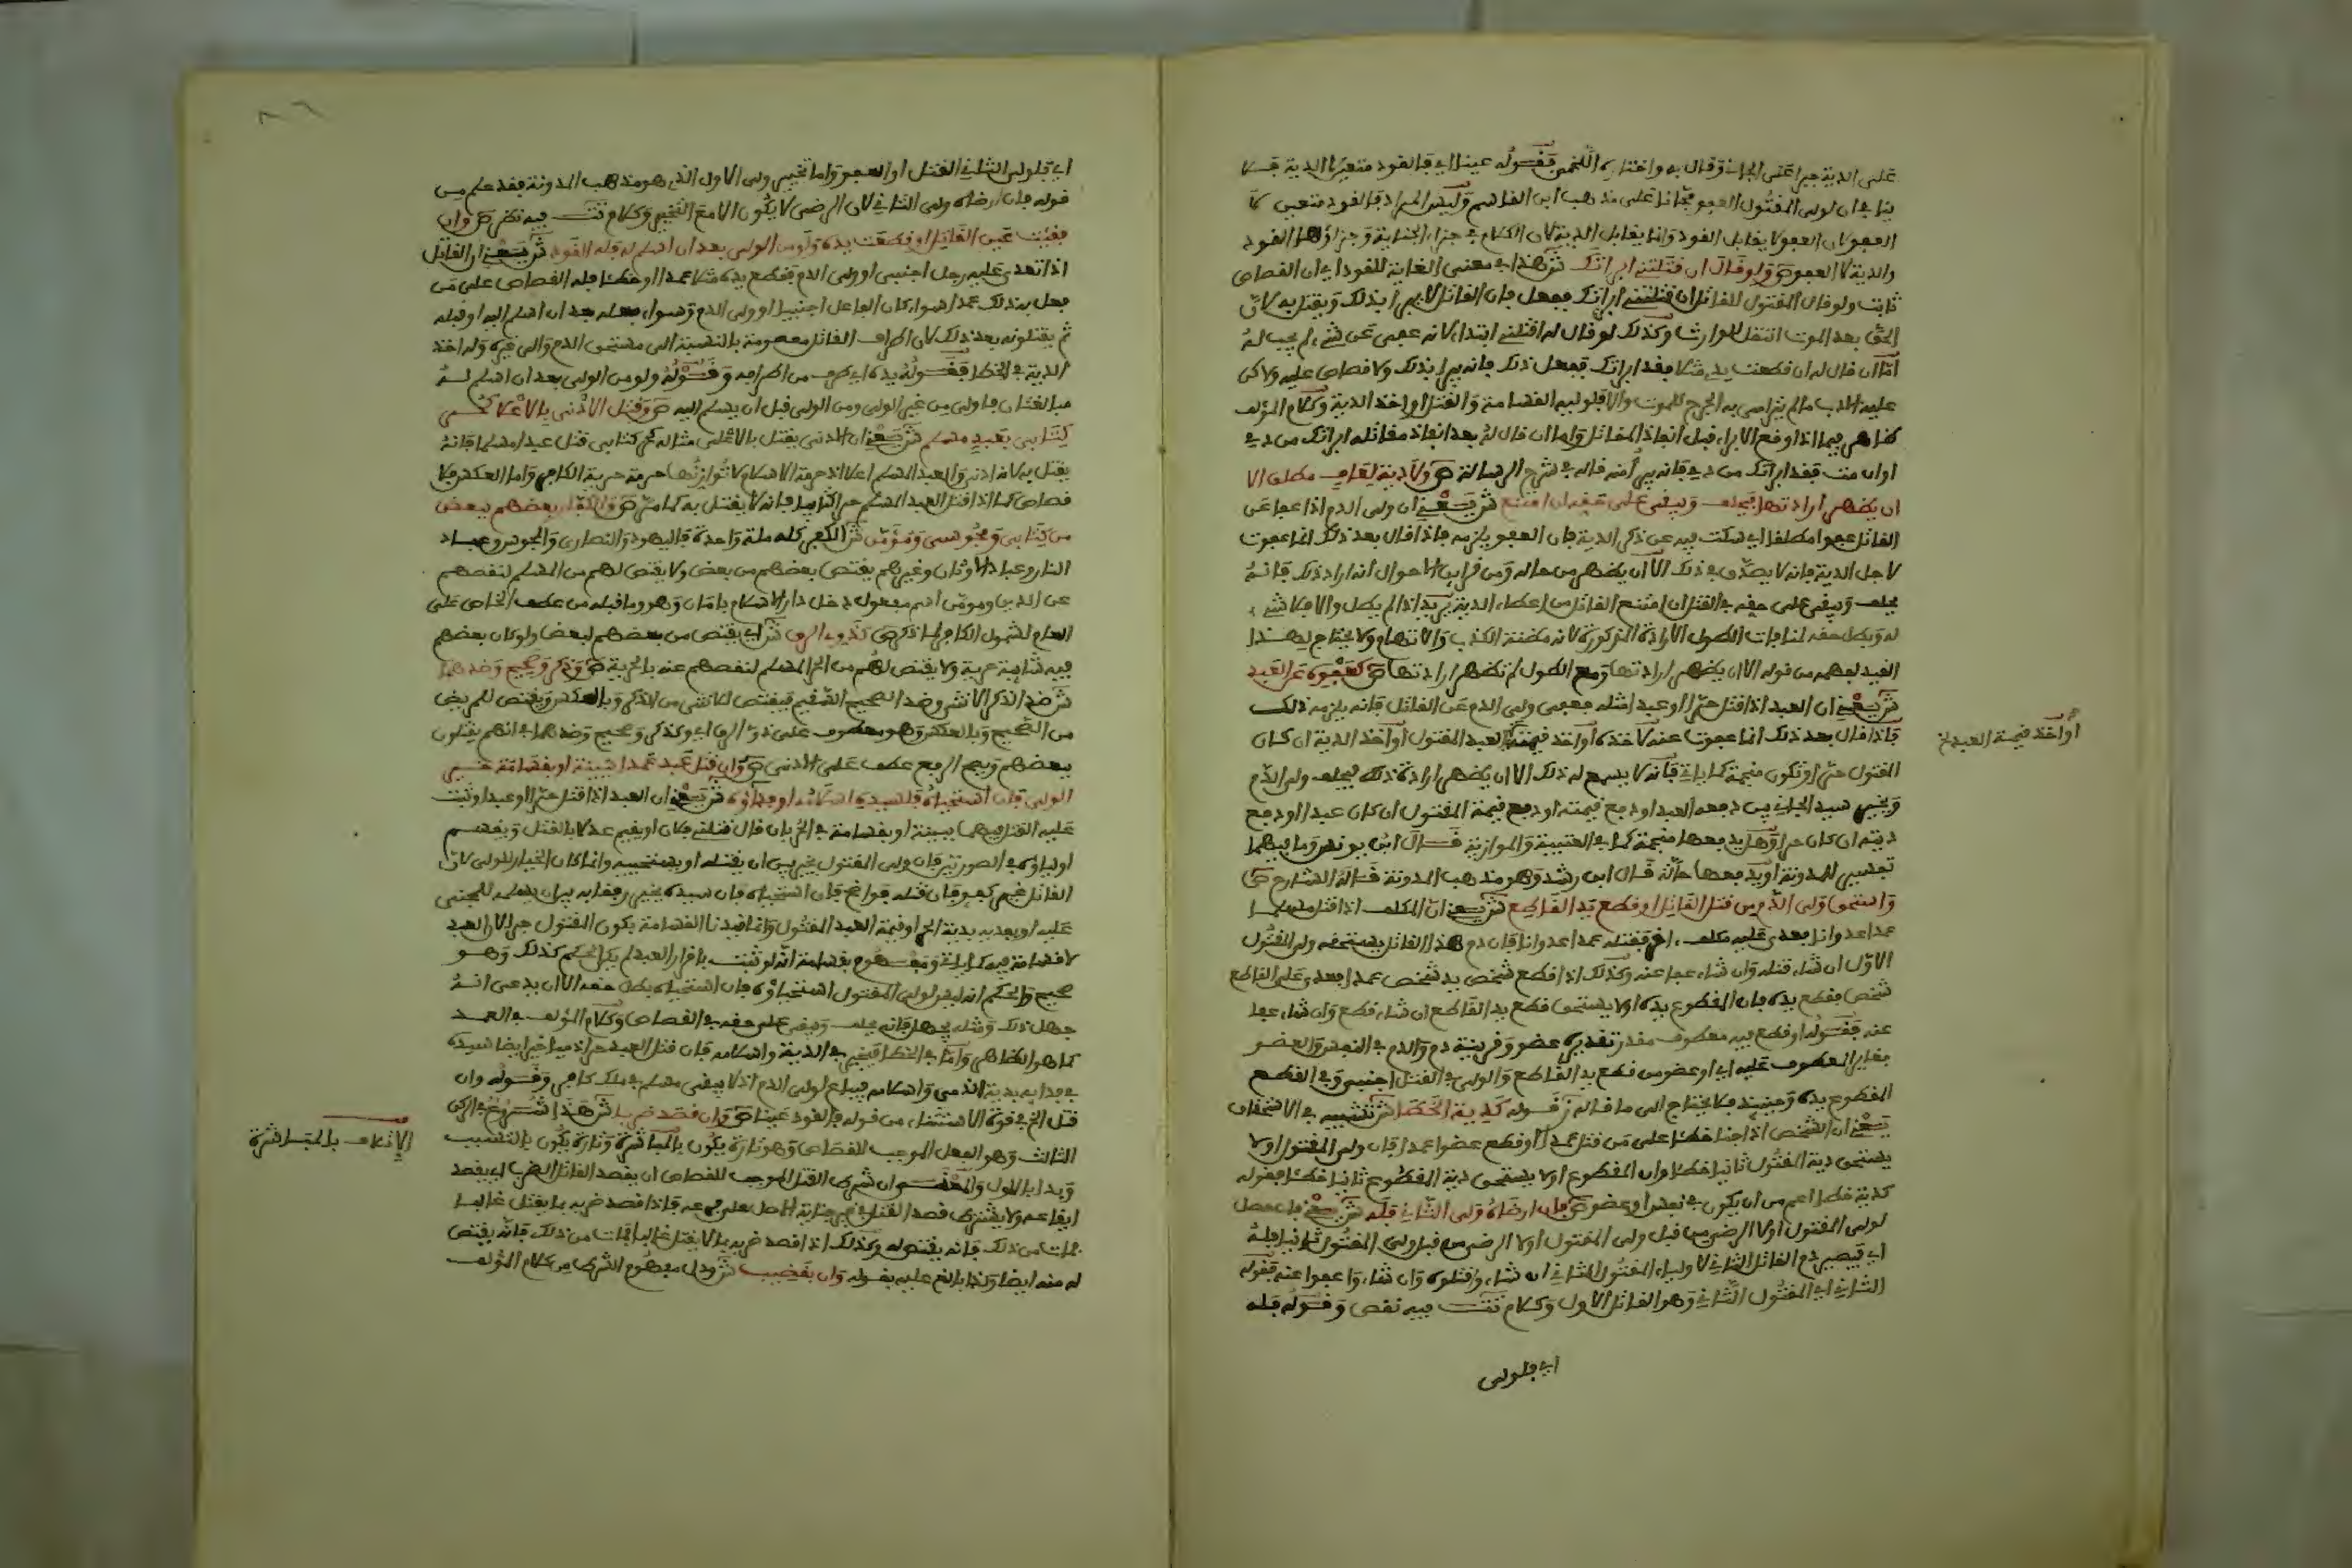 على الدية جبرا على الجاني وقال به واختاره اللخمي فقوله عينا اي فالقود متعين لا الدية فلا
ينافي ان لولي المقتول العفو مجانا على مذهب ابن القاسم وليس المراد فالقود متعين لا
العفو لان العفو لا يقابل القود وانما يقابل الدية لان الكلام في جزاء الجناية وجزاؤها القود
والدية لا العفو ص ولو قال ان قتلتني ابراتك ش هذا في معنى الغاية للقود اي ان القصاص
ثابت ولو قال المقتول للقاتل ان قتلتني ابراتك ففعل فان القاتل لا يبرا بذلك ويقتل به لان
الحق بعد الموت انتقل للوارث وكذلك لو قال له اقتلني ابتداء لانه عفى عن شيء لم يجب له
اما ان قال له ان قطعت يدي مثلا فقد ابراتك ففعل ذلك فانه يبرا بذلك ولا قصاص عليه ولاكن
عليه الادب ما لم يترامى به الجرح للموت والا فلوليه القسامة والقتل او اخذ الدية وكلام المؤلف
كظاهر فيما اذا وقع الابراء قبل انفاذ المقاتل واما ان قال له بعد انفاذ مقاتله ابراتك من دمي
او ان مت فقد ابراتك من دمي فانه يبرا منه قاله في شرح الرسالة ص ولا دية لعاف مطلق الا
ان يظهر ارادتها فيحلف ويبقى على حقه ان امتنع ش يعني ان ولي الدم اذا عفا عن
القاتل عفوا مطلقا اي سكت فيه عن ذكر الدية فان العفو يلزمه فاذا قال بعد ذلك انما عفوت
لاجل الدية فانه لا يصدق في ذلك الا ان يظهر من حاله ومن قراين الاحوال انه اراد ذلك فانه
يحلف ويبقى على حقه في القتل ان امتنع القاتل من اعطاء الدية يريد اذا لم يطل والا فلا شيء
له ويبطل حقه لمنافات الطول الارادة المذكورة لانه مظنة الكذب والاتهام ولا يحتاج لهذا
القيد لفهمه من قوله الا ان يظهر ارادتها ومع الطول لم تظهر ارادتها ص كعفوه عن العبد
ش يعني ان العبد اذا قتل حرا او عبدا مثله فعفى ولي الدم عن القاتل فانه يلزمه ذلك
فاذا قال بعد ذلك انما عفوت عنه لاخذه او اخذ قيمة العبد المقتول او اخذ الدية ان كان
او اخذ قيمة العبد الخ
المقتول حرا وتكون منجمة كما ياتي فانه لا يسمع له ذلك الا ان يظهر ارادة ذلك فيحلف ولي الدم
ويخير سيد الجاني بين دفعه العبد او دفع قيمته او دفع قيمة المقتول ان كان عبدا او دفع
ديته ان كان حرا وهل يدفعها منجمة كما في العتبية والموازية قال ابن يونس وما فيهما
تفسير للمدونة او يدفعها حالة قال ابن رشد وهو مذهب المدونة قاله الشارح ص
واستحق ولي الدم من قتل القاتل او قطع يد القاطع ش يعني ان المكلف اذا قتل مسلما
عمدا عدوانا فعدى عليه مكلف اخر فقتله عمدا عدوانا فان دم هذا القاتل يستحقه ولي المقتول
الاول ان شاء قتله وان شاء عفا عنه وكذلك اذا قطع شخص يد شخص عمدا فعدى على القاطع
شخص فقطع يده فان المقطوع يده اولا يستحق قطع يد القاطع ان شاء قطع وان شاء عفا
عنه فقوله او قطع فيه معطوف مقدر تقديره عضو وقرينة دم والدم في النفس والعضو
مغاير المعطوف عليه اي او عضو من قطع يد القاطع والولي في القتل اجنبي وفي القطع
المقطوع يده وحينئذ فلا يحتاج الى ما قاله ز قوله كدية الخطا ش تشبيه في الاستحقاق
يعني ان الشخص اذا جنا خطئا على من قتل عمدا او قطع عضوا عمدا فان ولي المقتول اولا
يستحق دية المقتول ثانيا خطئا وان المقطوع اولا يستحق دية المقطوع ثانيا خطئا فقوله
كدية خطا اعم من ان يكون في نفس او عضو ص فان ارضاه ولي الثاني فله ش يعني فان حصل
لولي المقتول اولا الرضى من قبل ولي المقتول اولا الرضى من قبل ولي المقتول ثانيا فله
اي فيصير دم القاتل الثاني لاولياء المقتول الثاني ان شاءوا قتلوه وان شاءوا عفوا عنه فقوله
الثاني اي المقتول الثاني وهو القاتل الاول وكلام تت فيه نقص وقوله فله
اي فلولي
اي فلولي الثاني القتل او العفو واما تخيير ولي الاول الذي هو مذهب المدونة فقد علم من
قوله فان ارضاه ولي الثاني لان الرضى لا يكون الا مع التخيير وكلام تت فيه نظر ص وان
فقئت عين القاتل او قطعت يده ولو من الولي بعد ان اسلم له فله القود ش يعني ان القاتل
اذا تعدى عليه رجل اجنبي او ولي الدم فقطع يده مثلا عمدا او خطئا فله القصاص على من
فعل به ذلك عمدا سواء كان الفاعل اجنبيا او ولي الدم وسواء فعله بعد ان اسلم اليه او قبله
ثم يقتلونه بعد ذلك لان اطراف القاتل معصومة بالنسبة الى مستحق الدم والى غيره وله اخذ
الدية في الخطا فقوله يده اي طرف من اطرافه وقوله ولو من الولي بعد ان اسلم له
مبالغتان فاولى من غير الولي ومن الولي قبل ان يسلم اليه ص وقتل الادنى بالاعلا كحر
كتابي بعبد مسلم ش يعني ان الادنى يقتل بالاعلى مثاله كحر كتابي قتل عبدا مسلما فانه
يقتل به لانه ادنى والعبد المسلم اعلا اذ حرمة الاسلام لا توازنها حرمة حرية الكافر واما العكس فلا
قصاص كما اذا قتل العبد المسلم حرا كتابيا فانه لا يقتل به كما مر ص والكفار بعضهم ببعض
من كتابي ومجوسي ومومن ش الكفر كله ملة واحدة فاليهود والنصارى والمجوس وعباد
النار وعباد الاوثان وغيرهم يقتص بعضهم من بعض ولا يقتص لهم من المسلم لنقصهم
عن الدين ومومن اسم مفعول دخل دار الاسلام بامان وهو وما قبله من عطف الخاص على
العام لشمول الكافر لما ذكر ص كذوي الرق ش اي يقتص من بعضهم لبعض ولو كان بعضهم
فيه شايبة حرية ولا يقتص لهم من الحر المسلم لنقصهم عنه بالحرية ص وذكر وصحيح وضدهما
ش ضد الذكر الانثى وضد الصحيح السقيم فيقتص للانثى من الذكر وبالعكس ويقتص للمريض
من الصحيح وبالعكس وهو معطوف على ذوي الرق اي وكذكر وصحيح وضدهما في انهم يقتلون
بعضهم وبعم الرفع عطف على الادنى ص وان قتل عبد عمدا ببينة او بقسامة خير
الولي فان استحياه فلسيده اسلامه او فداؤه ش يعني ان العبد اذا قتل حرا او عبدا وثبت
عليه القتل فيهما ببينة او بقسامة في الحر بان قال قتلني فلان او يقيم عدلا بالقتل ويقسم
اولياؤه في الصورتين فان ولي المقتول يخير بين ان يقتله او يستحييه وانما كان الخيار للولي لان
القاتل غير كفو فان قتله فواضح فان استحياه فان سيده يخير رفقا به بين ان يسلمه للمجني
عليه او يفديه بدية الحر او قيمة العبد المقتول وانما قيدنا القسامة بكون المقتول حرا لان العبد
لا قسامة فيه كما ياتي ومفهوم بقسامة انه لو ثبت باقرار العبد لم يكن الحكم كذلك وهو
صحيح والحكم انه ليس لولي المقتول استحياؤه فان استحياه بطل حقه الا ان يدعي انه
جهل ذلك ومثله يجهل فانه يحلف ويبقى على حقه في القصاص وكلام المؤلف في العمد
كما هو الظاهر واما في الخطا فيخير في الدية واسلامه فان قتل العبد حرا ذميا خير ايضا سيده
في فدايه بدية الذمي واسلامه فيباع لولي الدم اذ لا يبقى مسلم في ملك كافر وقوله وان
قتل الخ في قوة الاستثناء من قوله فالقود عينا ص وان قصد ضربا ش هذا شروع في الركن
الاتلاف بالمباشرة
الثالث وهو الفعل الموجب للقصاص وهو تارة يكون بالمباشرة وتارة يكون بالتسبب
وبدا بالاول والمعنى ان شرط القتل الموجب للقصاص ان يقصد القاتل الضرب اي يقصد
ايقاعه ولا يشترط قصد القتل في غير جناية الاصل على فرعه فاذا قصد ضربه بما يقتل غالبا
فمات من ذلك فانه يقتص له وكذلك اذا قصد ضربه بما لا يقتل غالبا فمات من ذلك فانه يقتص
له منه ايضا ولذا بالغ عليه بقوله وان بقضيب ش ودل مفهوم الشرط من كلام المؤلف